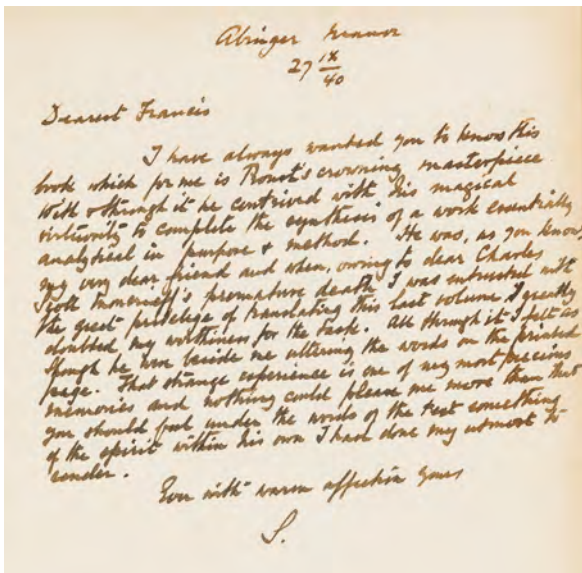 Abinger Manor
27 IX/40
Dearest Francis
I have always wanted you to know this
book which for me is Proust's crowning masterpiece
With & through it he contrived with his magical
virtuosity to complete the synthesis of a work essentially
analytical in purpose & method. He was, as you know,
my very dear friend and when, owing to dear Charles
Scott Moncrieff's premature death I was entrusted with
the great privilege of translating this last volume I greatly
doubted my worthiness for the task. All through it I felt as
though he were beside me uttering the words on the printed
page. That strange experience is one of my most precious
memories and nothing could please me more than that
you should feel under the words of the text something
of the spirit within his own I had done my utmost to
render.
Ever with warm affection yours
S.